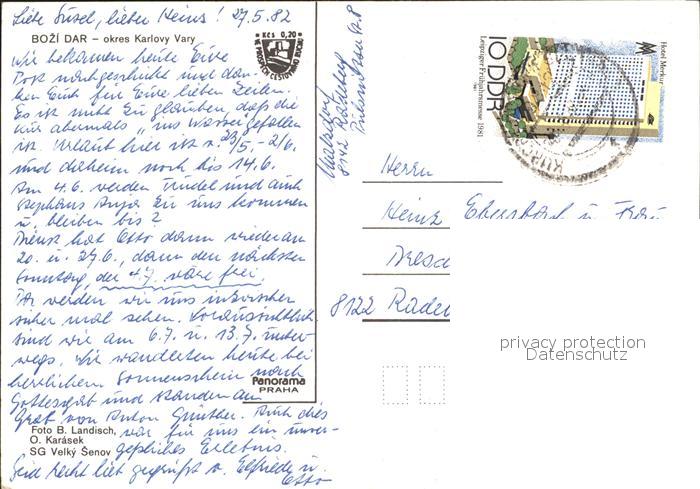 Liebe Susel, lieber Heins! 27.5.82
BOŽÍ DAR – okres Karlovy Vary
Kčs 0,20
VE PROSPĚCH CESTOVNÍHO RUCHU
Wir bekamen heute Eure
Post nachgeschickt und dan-
ken Euch für Eure lieben Zeilen.
Es ist nicht zu glauben, daß die
Kur abermals „ins Wasser" gefallen
ist. Urlaub hier ist v. 23/5.-2/6.
und daheim noch bis 14.6.
Am 4.6. werden Trudel und auch
Stephans Anja zu uns kommen
u. bleiben bis?
Dienst hat Otto dann wieder am
20. u. 27.6., dann den nächsten
Sonntag, der 4.7. wäre frei.
Wir werden wir uns inzwischen
sicher mal sehen. Voraussichtlich
sind wir am 6.7. u. 13.7. unter-
wegs. Wir wanderten heute bei
herrlichem Sonnenschein nach
Gottesgab und standen am
Grab von Anton Günther. Auch dies
war für uns ein unver-
geßliches Erlebnis.
Seid recht lieb gegrüßt v. Elfriede u.
Otto
Panorama
PRAHA
Foto B. Landisch,
O. Karásek
SG Velký Šenov
8142 Radeberg
Hotel Merkur
10 DDR
Leipziger Frühjahrsmesse 1981
Herrn
Heinz Eberhard u. Frau
Dresd
8122 Radeb
privacy protection
Datenschutz